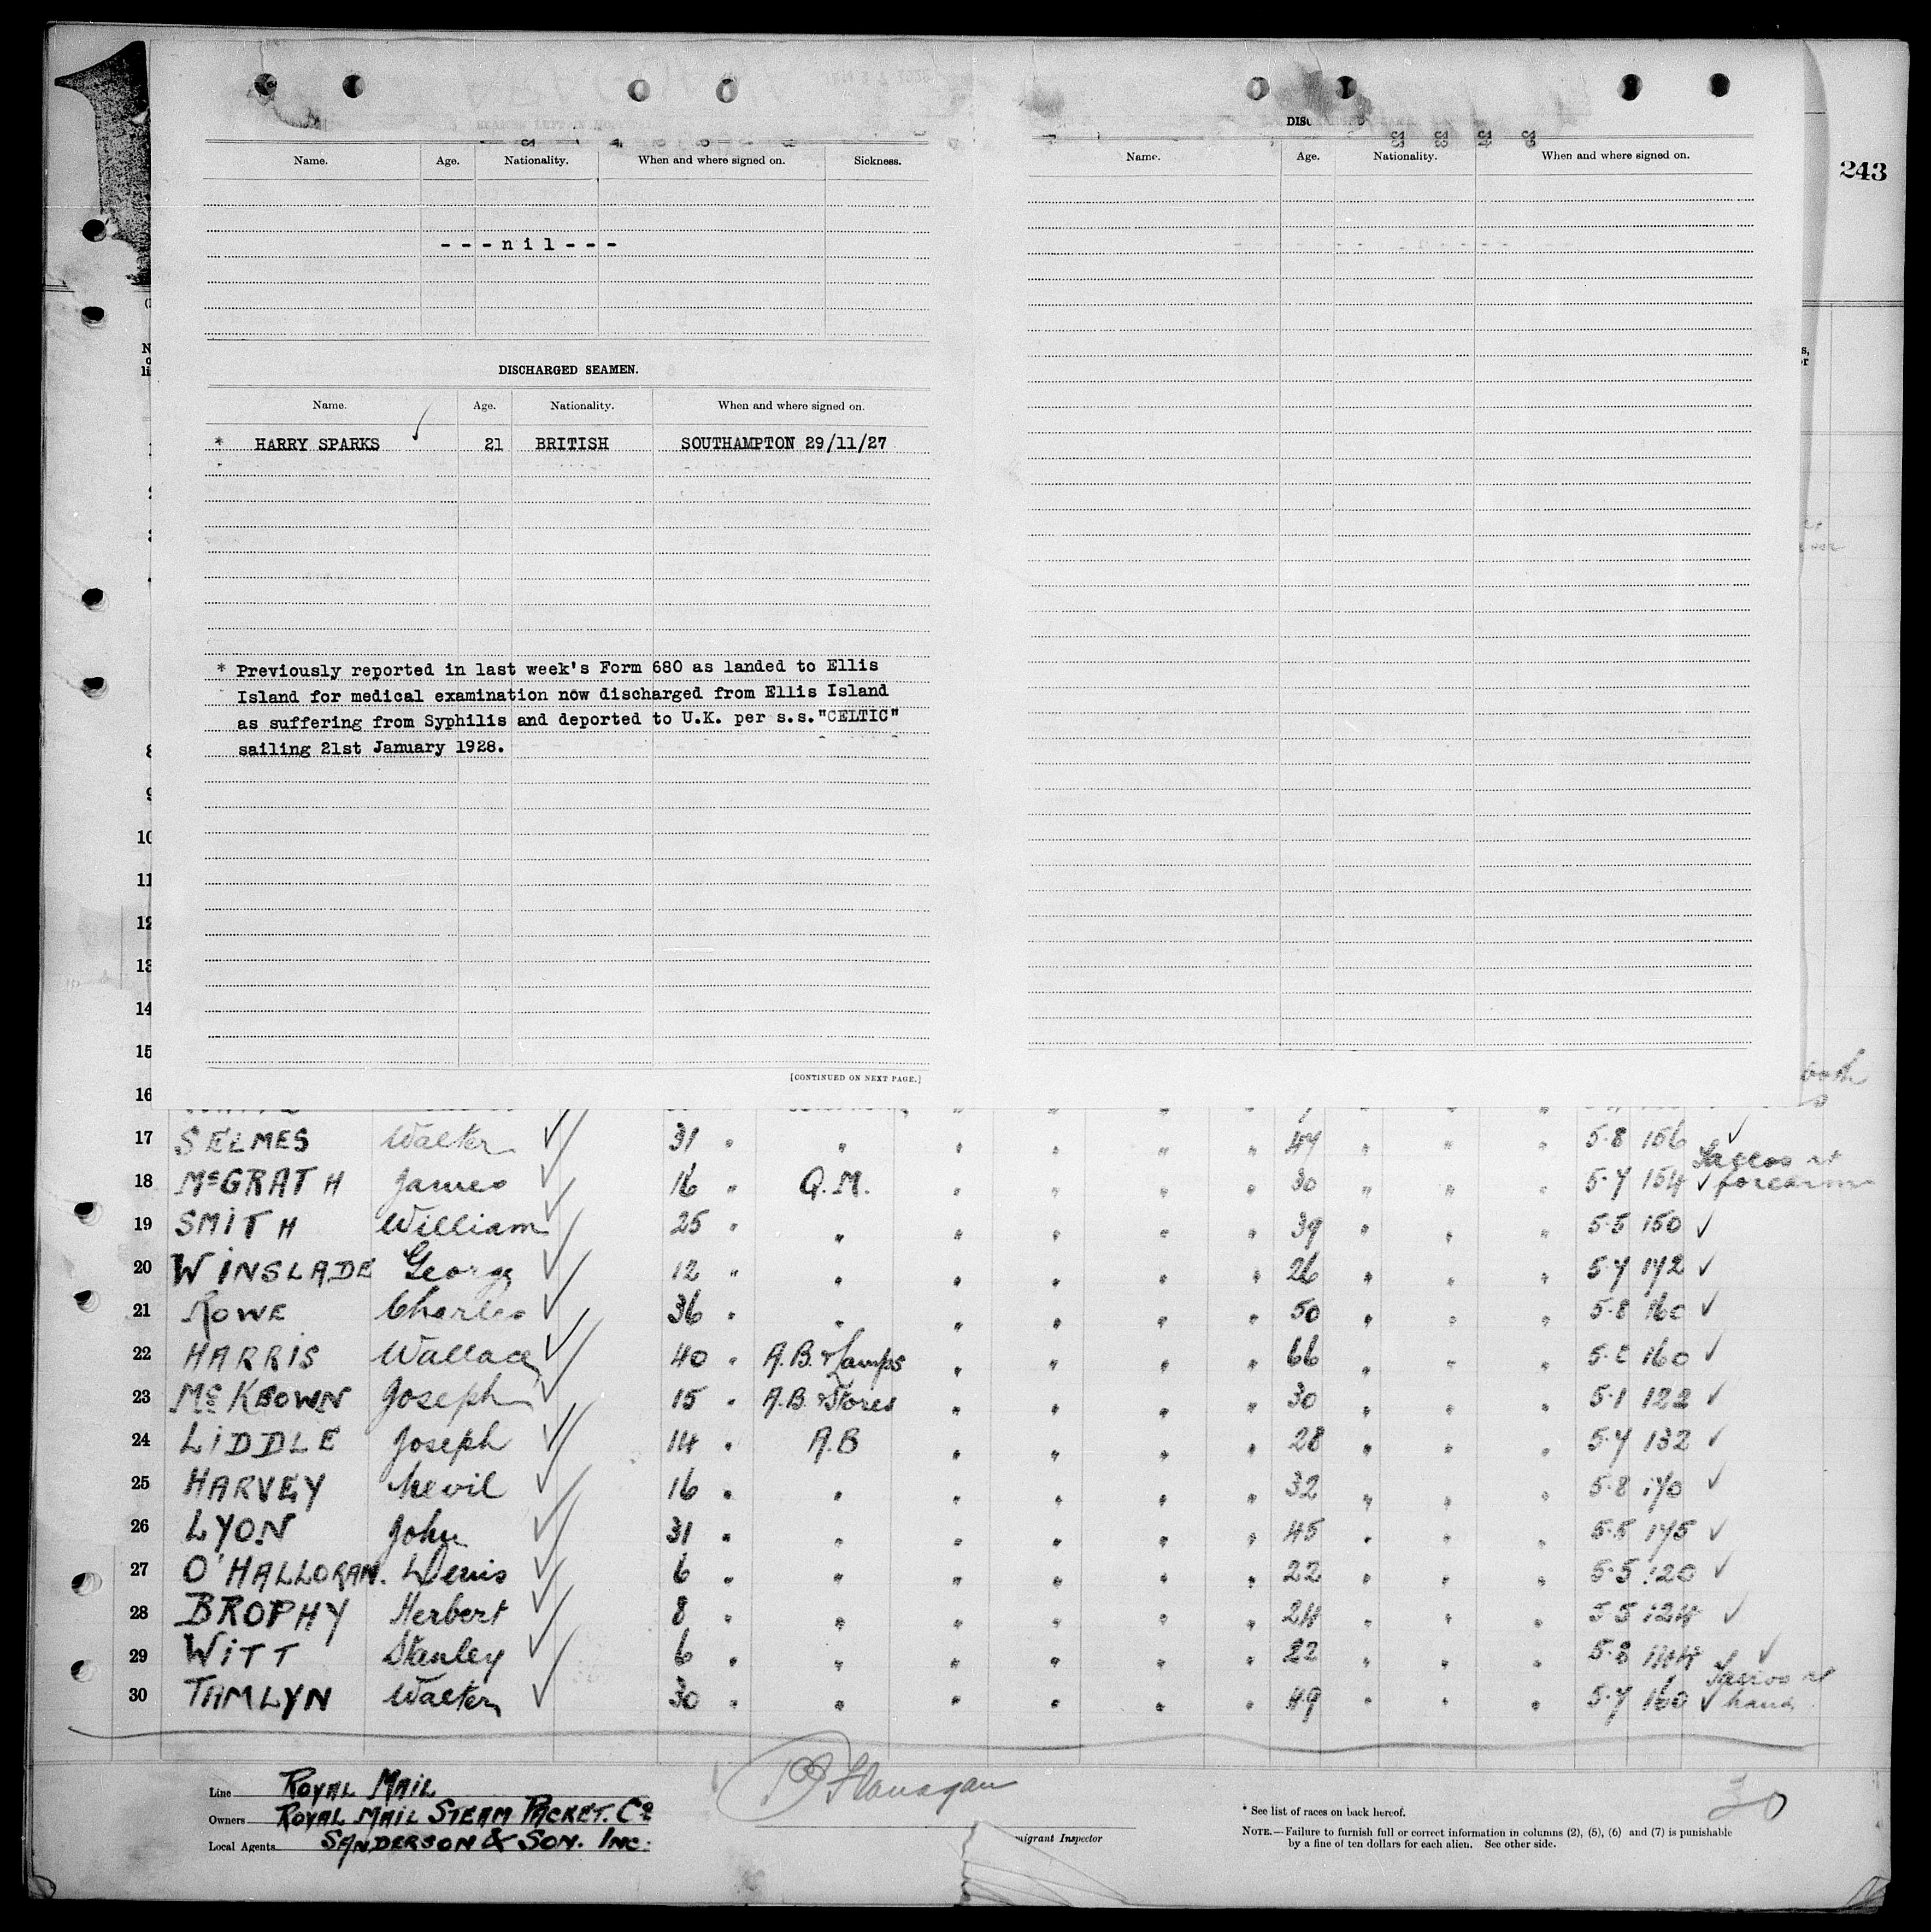 243
Name. Age. Nationality. When and where signed on. Sickness.
---nil---
DISCHARGED SEAMEN.
Name. Age. Nationality. When and where signed on.
* HARRY SPARKS 21 BRITISH SOUTHAMPTON 29/11/27
* Previously reported in last week's Form 680 as landed to Ellis
Island for medical examination now discharged from Ellis Island
as suffering from Syphilis and deported to U.K. per s.s."CELTIC"
sailing 21st January 1928.
[CONTINUED ON NEXT PAGE.]
Name. Age. Nationality. When and where signed on.
10
11
12
13
14
15
16
17 SELMES Walter 31 " " " " " " 47 " " " 5.8 156 ✓
18 McGRATH James 16 " Q.M. " " " " 30 " " " 5.7 154 ✓ forearm
19 SMITH William 25 " " " " " " 39 " " " 5.5 150 ✓
20 WINSLADE George 12 " " " " " " 26 " " " 5.7 172 ✓
21 ROWE Charles 36 " " " " " " 50 " " " 5.8 160 ✓
22 HARRIS Wallace 40 " A.B. & Lamps " " " " 66 " " " 160 ✓
23 McKEOWN Joseph 15 " A.B. & Stores " " " " 30 " " " 5.1 122 ✓
24 LIDDLE Joseph 14 " A.B " " " " 28 " " " 5.7 132 ✓
25 HARVEY Nevil 16 " " " " " " 32 " " " 5.8 170 ✓
26 LYON John 31 " " " " " " 45 " " " 5.5 175 ✓
27 O'HALLORAN. Denis 6 " " " " " " 22 " " " 5.5 120 ✓
28 BROPHY Herbert 8 " " " " " " 24 " " " 5.5 124 ✓
29 WITT Stanley 6 " " " " " " 22 " " " 5.8 144 ✓
30 TAMLYN Walter 30 " " " " " " 49 " " " 5.7 160 ✓ hand
Line ROYAL MAIL
Owners ROYAL MAIL STEAM PACKET. Co
Local Agents SANDERSON & SON. INC.
Flanagan
migrant Inspector
30
* See list of races on back hereof.
NOTE.—Failure to furnish full or correct information in columns (2), (5), (6) and (7) is punishable
by a fine of ten dollars for each alien. See other side.